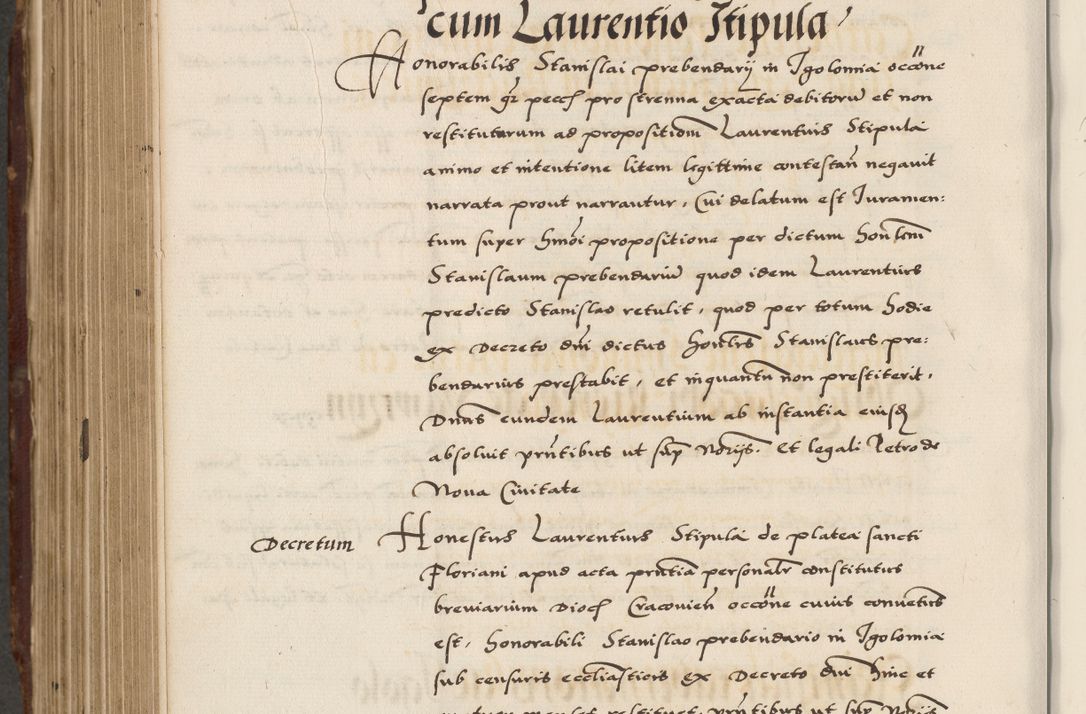 cum Laurentio Stipula
Honorabilis Stanislai prebendarij in Igolomia occõne
septem gr pecc pro strenna exacta debitorũ et non
restitutarum ad propositiom̃ Laurentius Stipula
animo et intentione litem legittime contestañ negauit
narrata prout narrantur, Cui delatum est Iuramen:
tum super hmõi propositione per dictum honlem
Stanislaum prebendariũ quod idem Laurentius
predicto Stanislao retulit, quod per totum hodie
ex Decreto dni dictus honlis Stanislaus pre:
bendarius prestabit, et inquantũ non prestiterit,
Dnus eundem Laurentium ab instantia eiusq
absoluit prñtibus ut sup Norijs. Et legali Petro de
Noua Ciuitate
Decretum Honestus Laurentius Stipula de platea sancti
Floriani apud acta prntia personalr constitutus
breuiarium Dioc Cracouien occõne cuius conuentus
est, honorabili Stanislao prebendario in Igolomia
sub censuris ecclīasticis ex Decreto dni hinc et